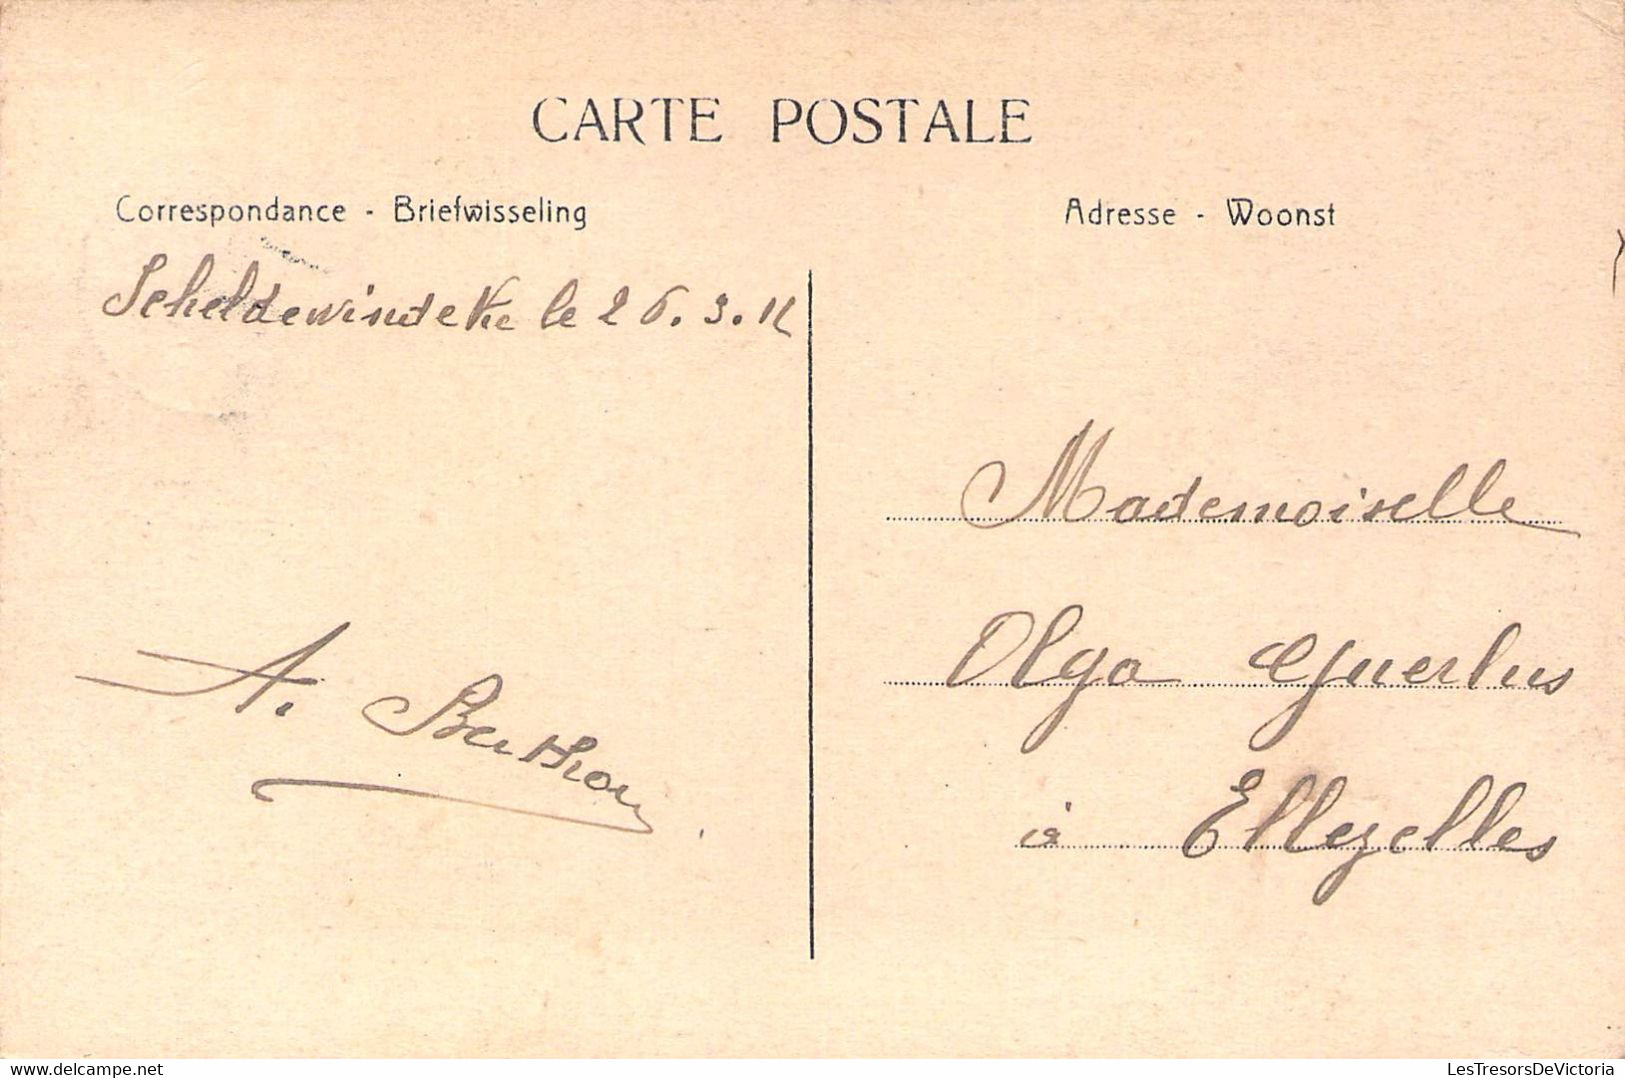 CARTE POSTALE
Correspondance - Briefwisseling
Adresse - Woonst
Scheldewindeke le 26.3.12
Mademoiselle
Olga
à Ellezelles
A.
Delcampe.net
LesTresorsDeVictoria